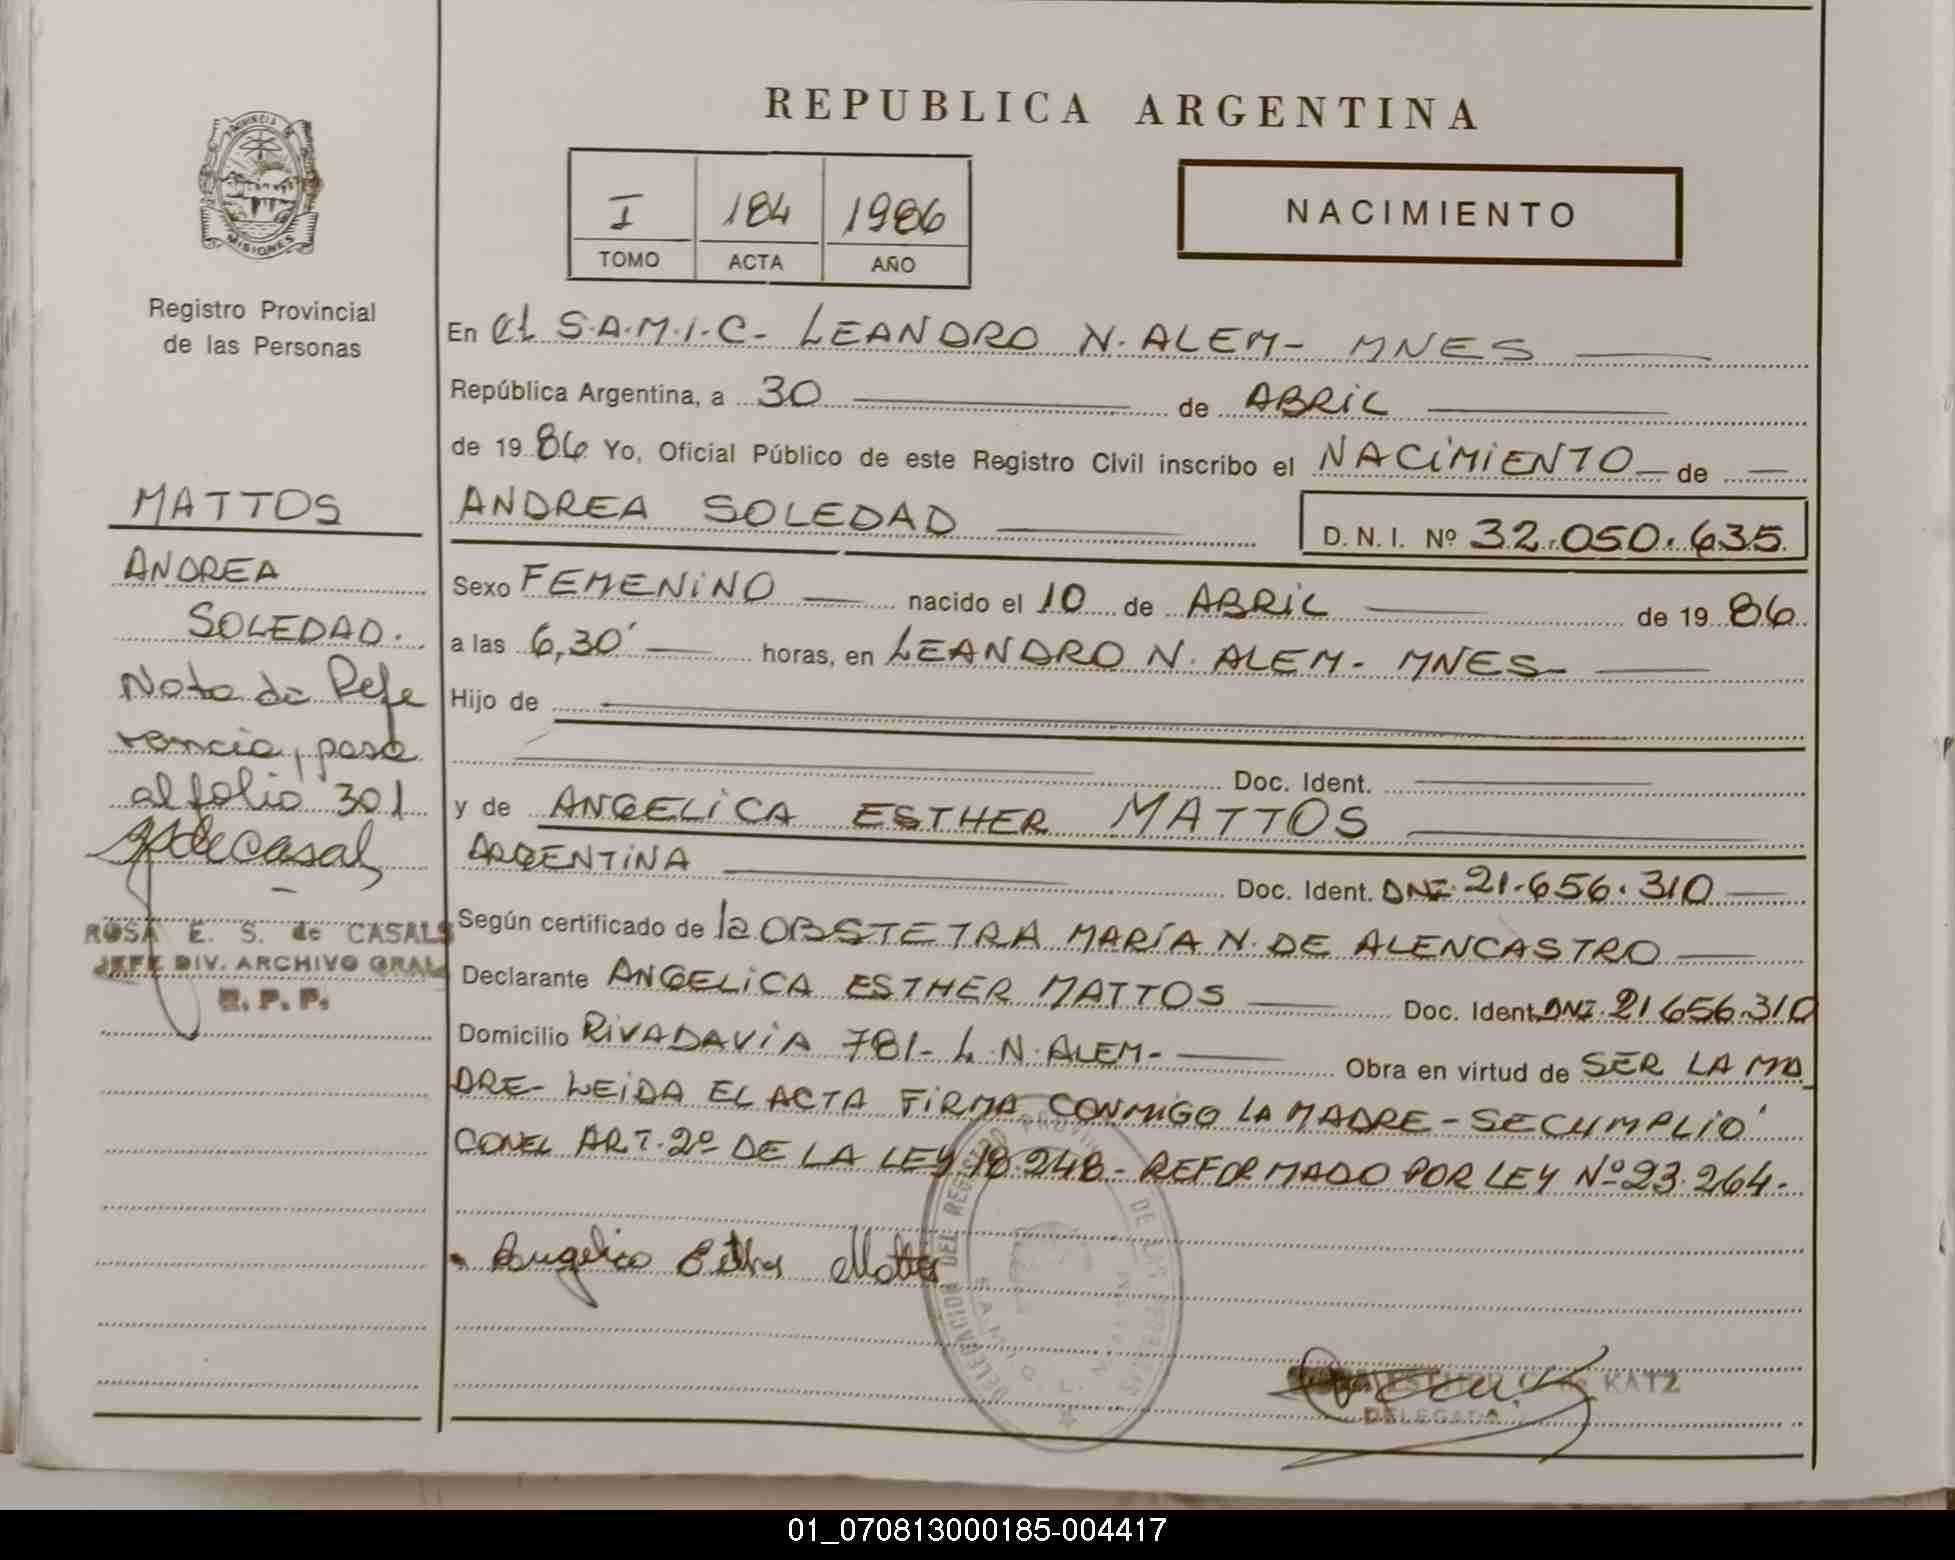 REPUBLICA ARGENTINA
PROVINCIA DE
MISIONES
Registro Provincial
de las Personas
I 184 1986
TOMO ACTA AÑO
NACIMIENTO
En el S.A.M.I.C- LEANDRO N. ALEM- MNES
República Argentina, a 30 de ABRIL
de 1986 Yo, Oficial Público de este Registro Civil inscribo el NACIMIENTO de
ANDREA SOLEDAD D. N. I. Nº 32.050.635
Sexo FEMENINO nacido el 10 de ABRIL de 1986
a las 6,30' horas, en LEANDRO N. ALEM- MNES-
Hijo de
Doc. Ident.
y de ANGELICA ESTHER MATTOS
ARGENTINA Doc. Ident. DNI. 21.656.310
Según certificado de la OBSTETRA MARÍA N. DE ALENCASTRO
Declarante ANGELICA ESTHER MATTOS Doc. Ident. DNI. 21656.310
Domicilio RIVADAVIA 781- L.N. ALEM- Obra en virtud de SER LA MA
DRE- LEIDA EL ACTA FIRMA CONMIGO LA MADRE- SE CUMPLIO'
CON EL ART. 2º DE LA LEY 18.248- REFORMADO POR LEY Nº 23.264.
Angelica Esther Mattos
DELEGACION DEL REGISTRO PROVINCIAL DE LAS PERSONAS
KATZ
DELEGADA
MATTOS
ANDREA
SOLEDAD.
Nota de Refe
rencia, pasa
al folio 301
ROSA E. S. de CASALS
JEFE DIV. ARCHIVO GRAL
R. P. P.
01_070813000185-004417